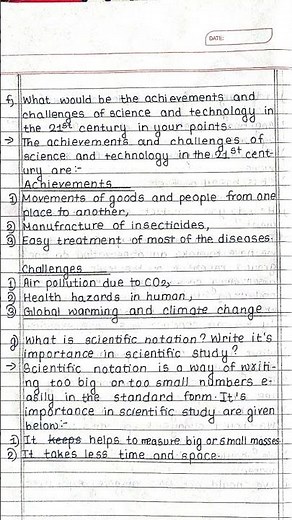 DATE:
f) What would be the achievements and
challenges of science and technology in
the 21st century in your points.
→ The achievements and challenges of
science and technology in the 21st cent-
ury are:-
Achievements
1) Movements of goods and people from one
place to another,
2) Manufracture of insecticides,
3) Easy treatment of most of the diseases.
Challenges
1) Air pollution due to CO2,
2) Health hazards in human,
3) Global warming and climate change
g) What is scientific notation? Write it's
importance in scientific study?
→ Scientific notation is a way of writi-
ng too big or too small numbers e-
asily in the standard form. It's
importance in scientific study are given
below:-
1) It keeps helps to measure big or small masses
2) It takes less time and space.